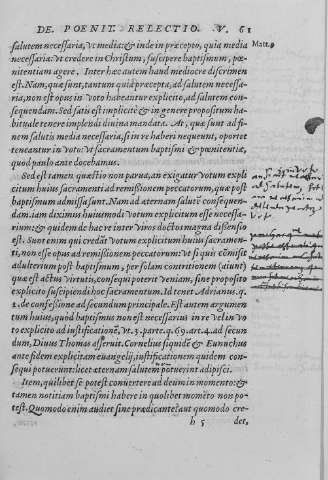 DE. POENIT. RELECTIO. V. 61
salutem necessaria, vt media: & inde in præcepto, quia media
Matt.
necessaria: vt credere in Christum, suscipere baptismum, pœ-
nitentiam agere. Inter hæc autem haud mediocre discrimen
est. Nam, quæ sunt, tantum quia præcepta, ad salutem necessa-
ria, non est opus in voto habeantur explicito, ad salutem con-
sequendam. Sed satis est implicitè & in genere propositum ha-
bitualè tenere implendi diuina mandata. At, quæ sunt ad fi-
nem salutis media necessaria, si in re haberi nequeunt, oportet
teneantur in voto: vt sacramentum baptismi & pœnitentiæ,
quod paulo ante docebamus.
Sed est tamen quæstio non parua, an exigatur votum expli
citum huius sacramenti ad remissionem peccatorum, quæ post
baptismum admissa sunt. Nam ad æternam salutẽ consequen-
dam. iam diximus huiusmodi votum explicitum esse necessa-
rium: & quidem de hac re inter viros doctos magna dissensio
est. Sunt enim qui credãt votum explicitum huius sacramen-
ti, non esse opus ad remissionem peccatorum: vt si quis cõmisit
adulterium post baptismum, per solam contritionem (aiunt)
quæ est actus virtutis, consequi poterit veniam, sine proposito
explicito suscipiendi hoc sacramentum. Id tenet. Adrianus. q.
2. de confessione ad secundum principale. Est autem argumen
tum huius, quòd baptismus non est necessarius in re vel in vo
to explicito ad iustificationẽ, vt. 3. parte. q. 69. art. 4. ad secun
dum, Diuus Thomas asseruit. Cornelius siquidẽ & Eunuchus
ante fidem explicitam euangelij, iustificationem quidem con-
sequi potuerunt: licet æternam salutem non potuerint adipisci.
Item, quilibet se potest conuertere ad deum in momento: &
tamen notitiam baptismi habere in quolibet momẽto non po-
test. Quomodo enim audiet sine prædicante? aut quomodo cre-
h 5 det,